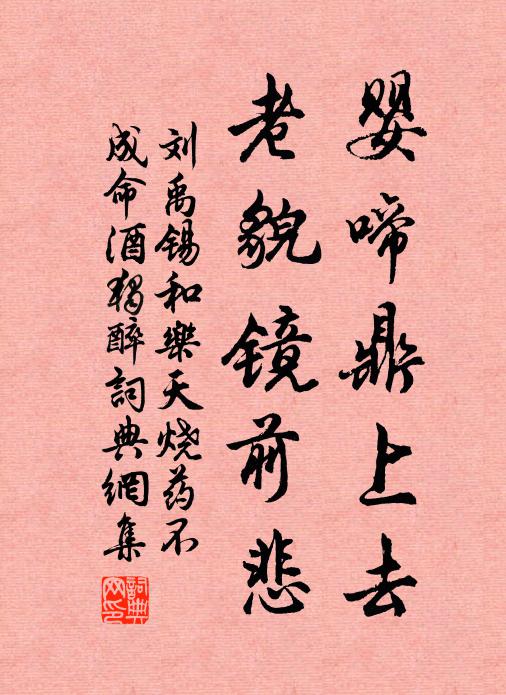 婴啼鼎上去
老貌镜前悲
刘禹锡和樂天烧药不
成命酒独醉詞典網集
詞典网印